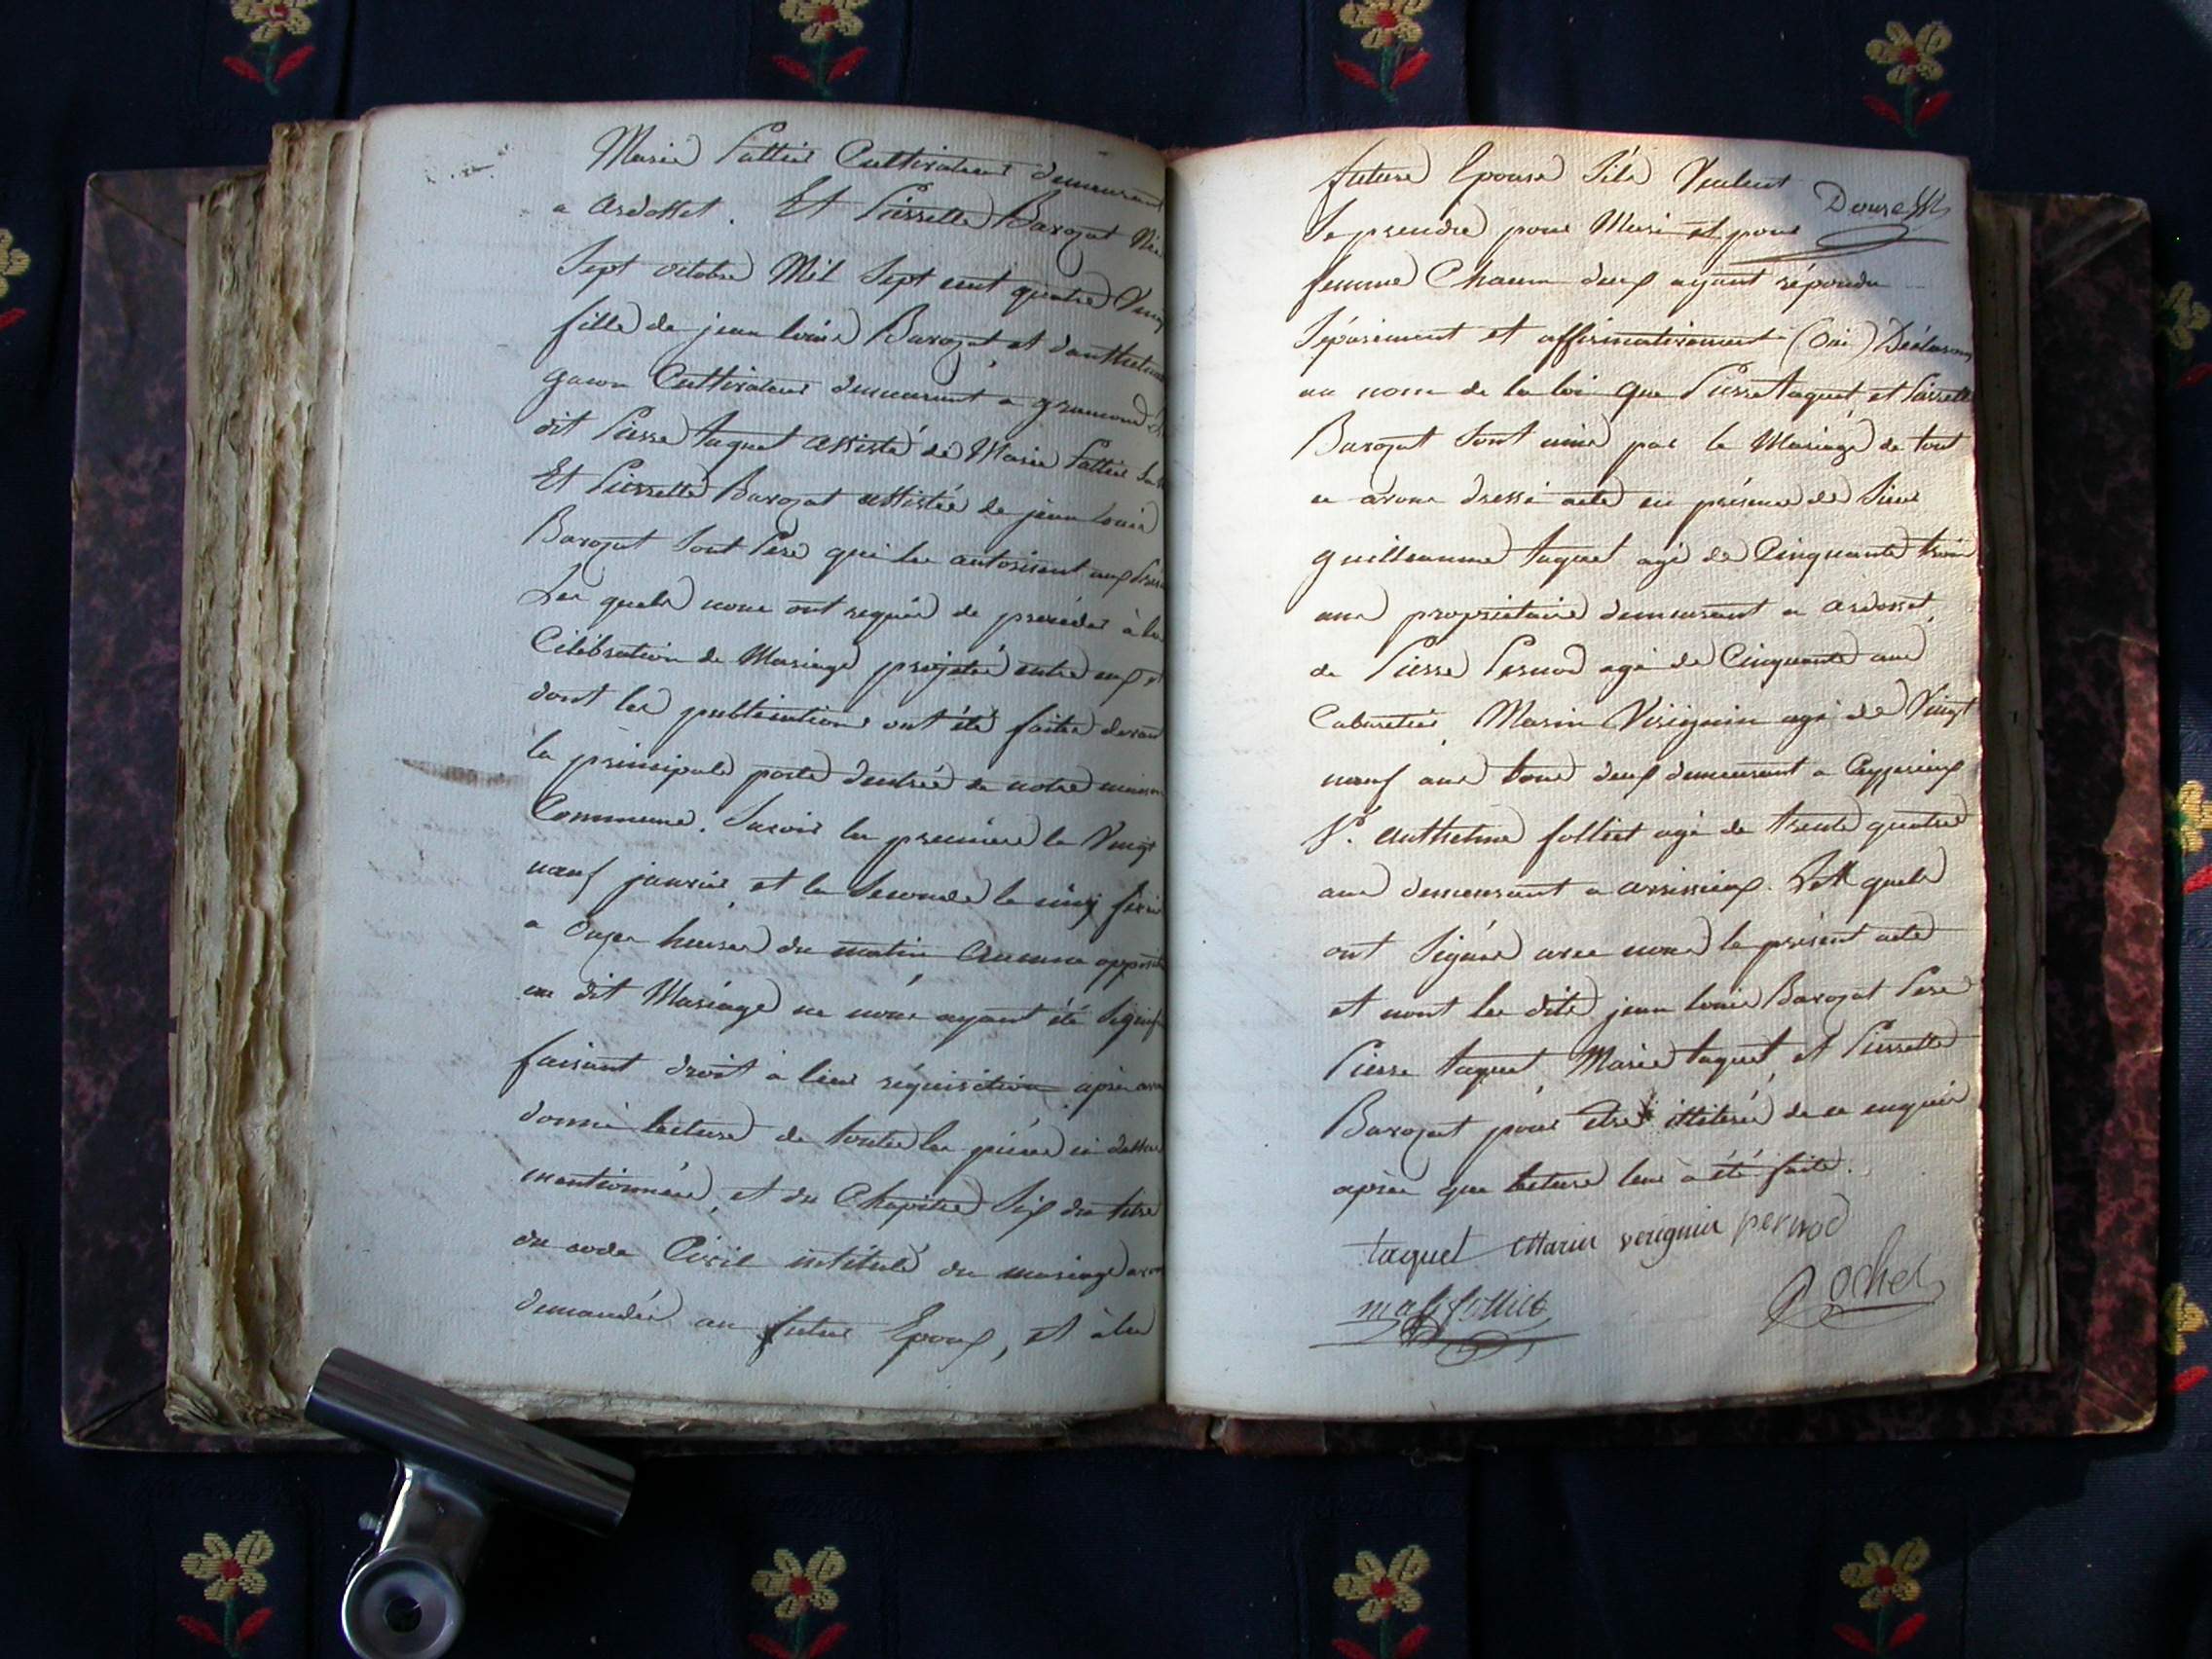 Marie Pattier Cultivateur demeurant
a ardosset. Et Pierrette Barojat Née
Sept octobre Mil Sept cent quatre Ving
fille de jean louis Barojat et danthelme
gacon Cultivateur demeurant a gramond
dit Pierre taquet assisté de Marie Pattier
Et Pierrette Barojat assistée de jean louis
Barojat Sont Pere qui les autorisent aux
Les quels nous ont requis de procéder à la
Célébration de Mariage projetté entre eux et
dont les publications ont été faites devant
la principale porte dentrée de notre maison
Commune. Savoir la premiere le Vingt
nœuf janvier et la Seconde le cinq
a onze heures du matin Aucune
au dit Mariage ne nous ayant été
faisant droit à leur réquisition après
donné lecture de toutes les pièces ci dessus
mentionnées, et du Chapitre Six du titre
du code Civil intitulé du mariage
demandée au futur Epoux, et à la
future Epouse Sils Veulent
Se prendre pour Mari et pour
femme Chacun deux ayant répondu
Séparément et affirmativement (Oui) Déclarons
au nom de la loi que Pierre taquet et Pierrette
Barojat Sont unis par le Mariage de tout
ce avons dressé acte en présence de Sieur
guilleaume taquet agé de Cinquante trois
ans propriétaire demeurant a ardosset,
de Pierre Pernod agé de Cinquante ans
Cabaretier, Marin Vérignin agé de Vingt
nœuf ans tous deux demeurant a Ceyzerieux
Sr. Anthelme folliet agé de trente quatre
ans demeurant a Avrissieux. quels
ont Signés avec nous le présent acte
et nont les dits jean louis Barojat Pere
Pierre taquet Marie taquet, et Pierrette
Barojat pour être illitérés de ce enquis
après que lecture leur à été faite.
taquet Marin verignin pernod
Rochet